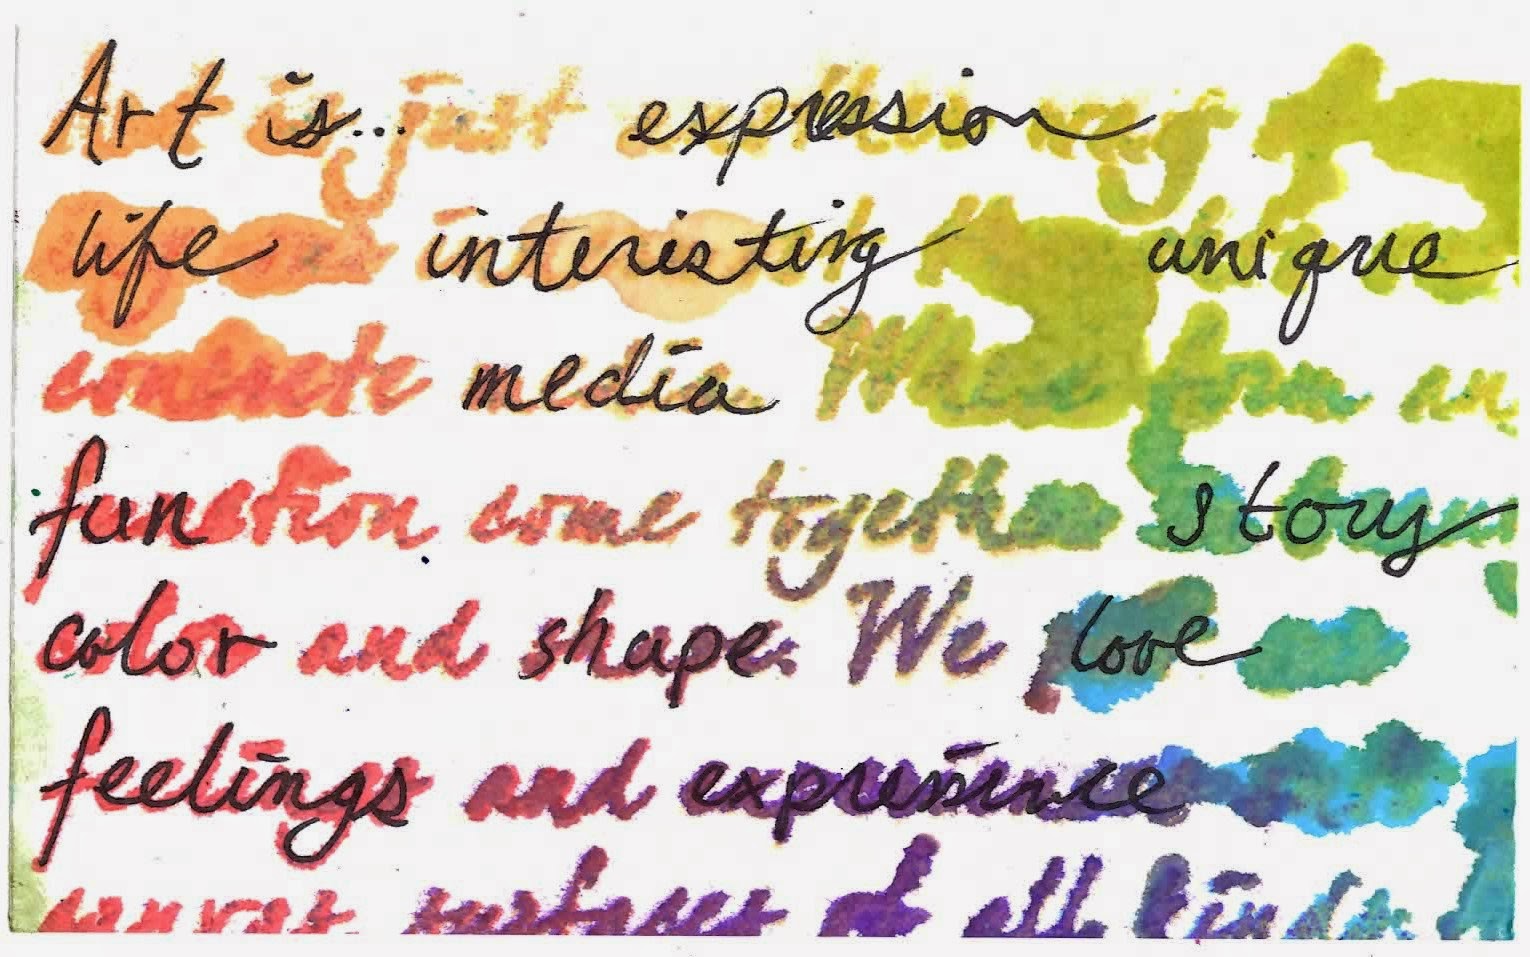 Art is... just expression
life interesting unique
concrete media Where form an
function come together story
color and shape. We love
feelings and expresience
canvas surfaces of all kinds